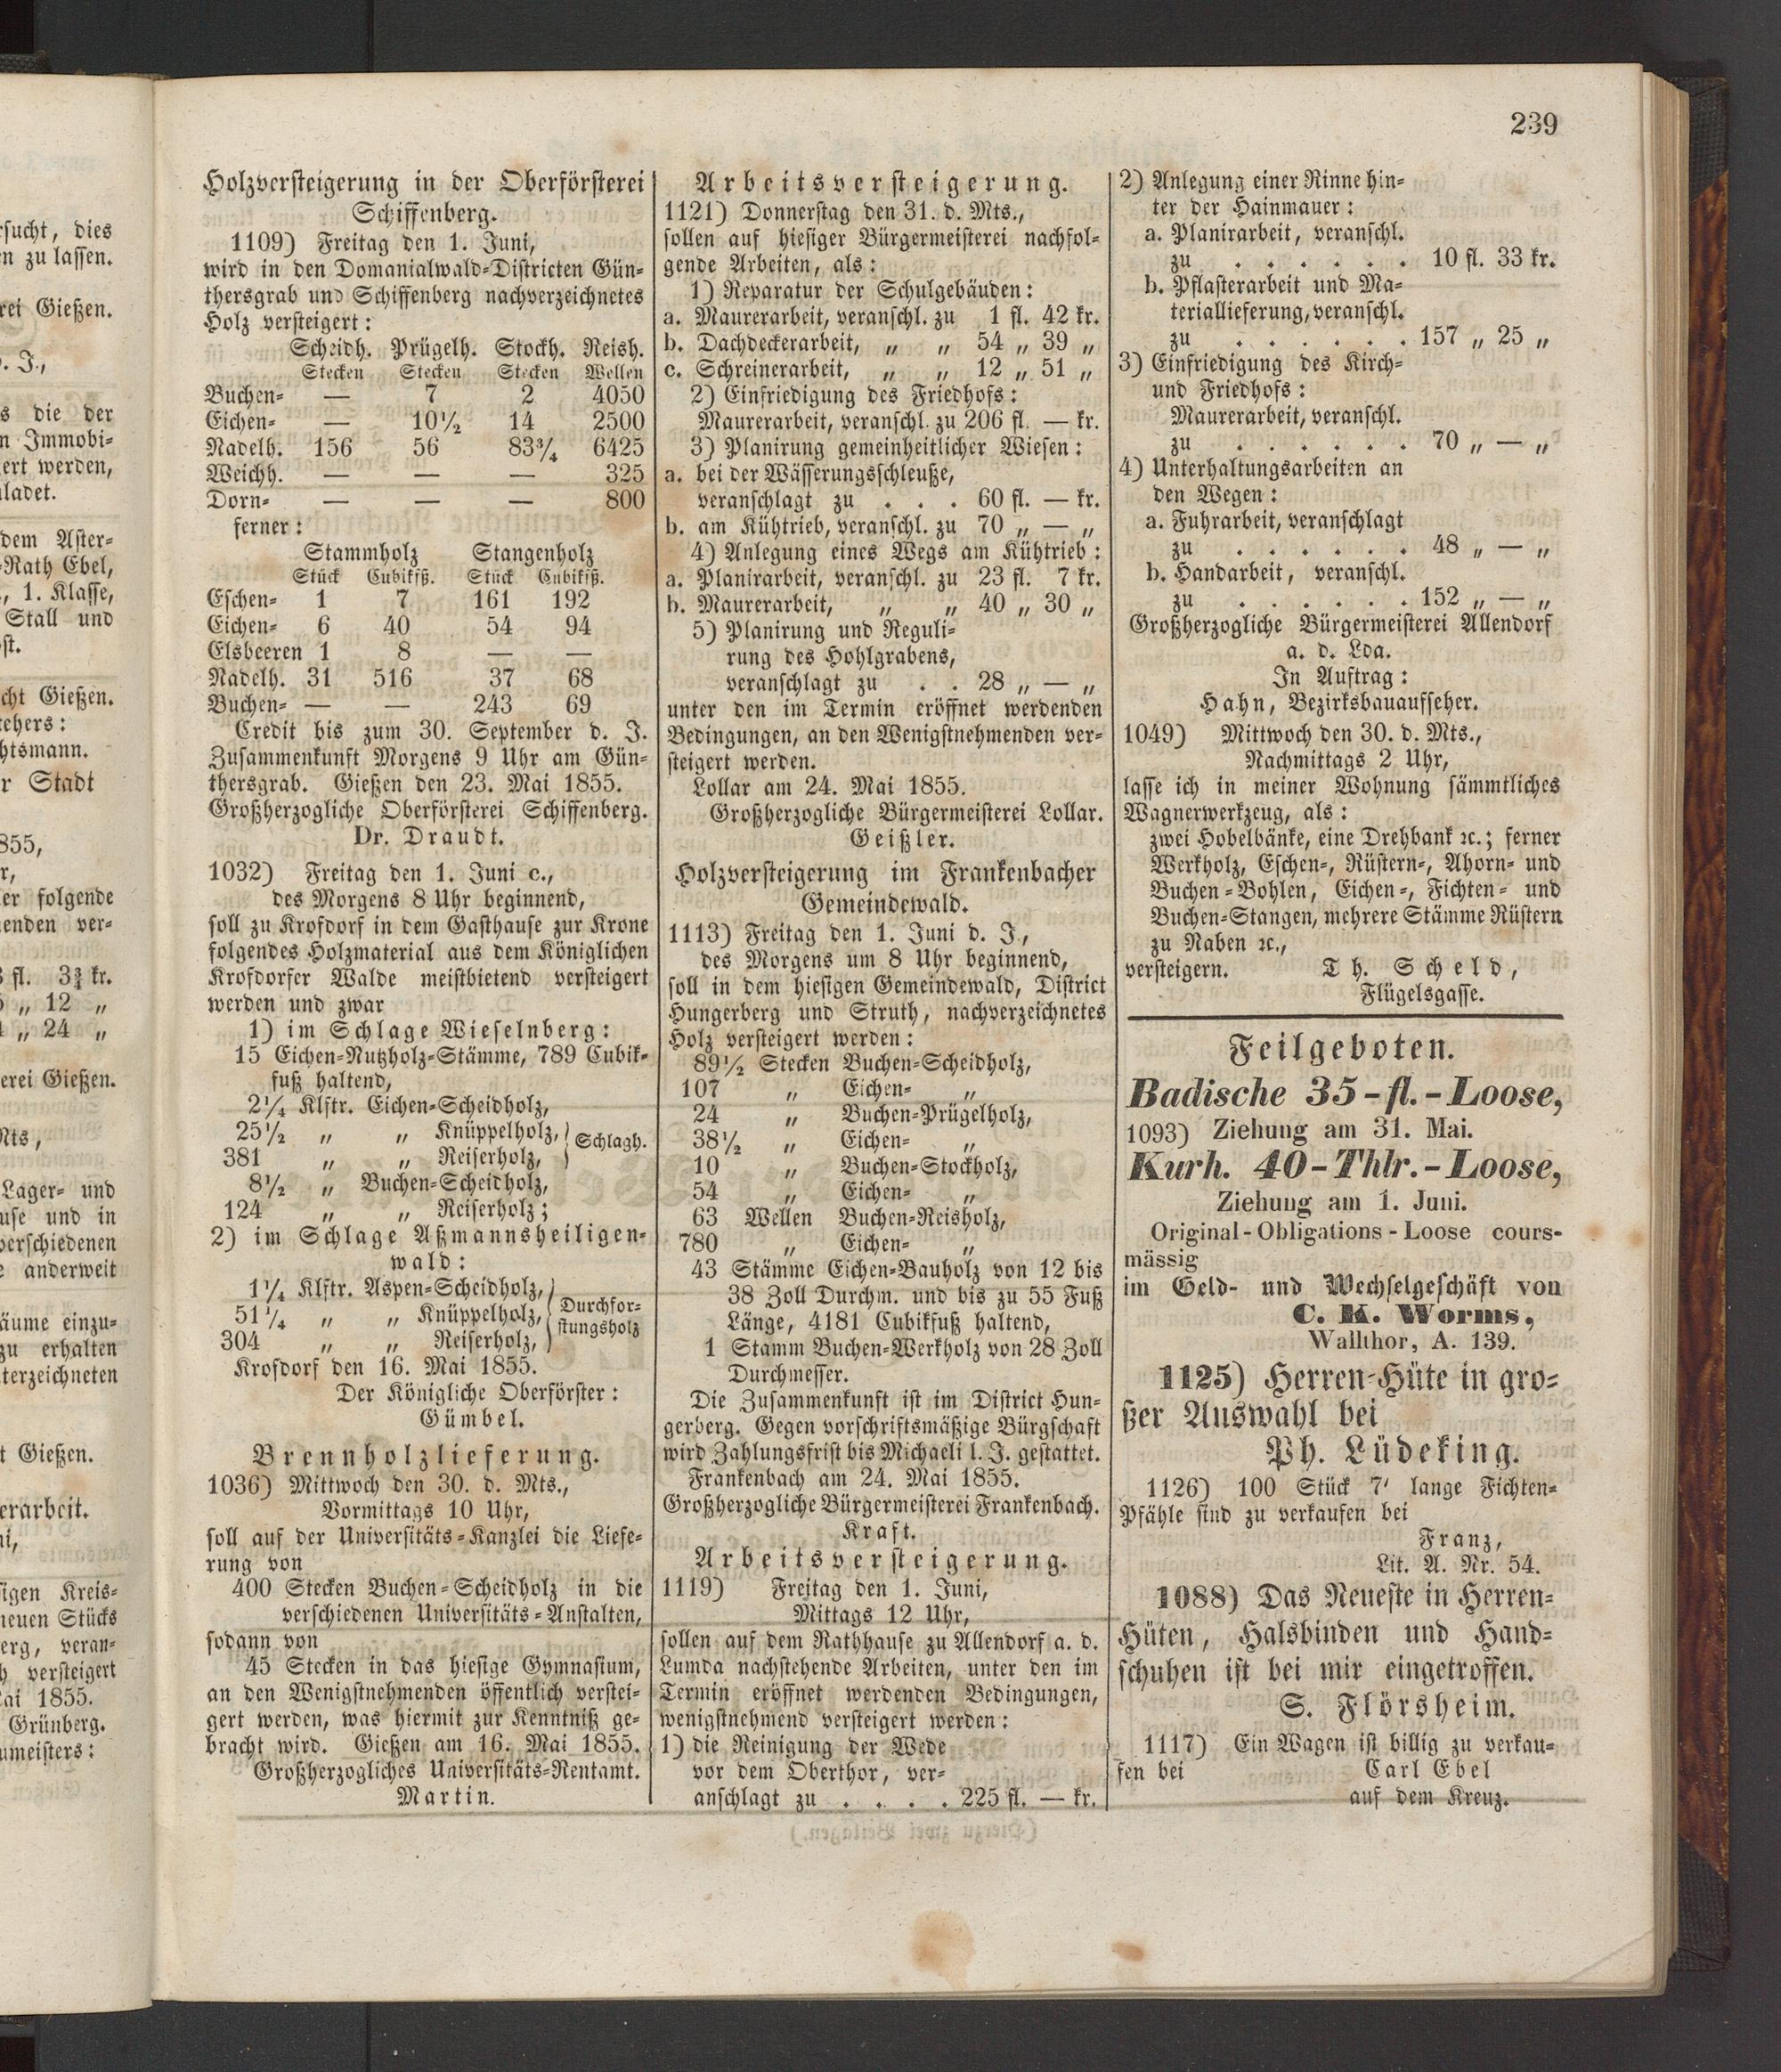 rsucht, dies
en zu lassen.
rei Gießen.
. J.,
s die der
n Immobi-
ert werden,
ladet.
dem Aster-
Rath Ebel,
, 1. Klasse,
Stall und
st.
cht Gießen.
tehers:
htsmann.
r Stadt
855,
r,
er folgende
enden ver-
fl. 3¾ kr.
„ 12 „
„ 24 „
erei Gießen.
Mts,
Lager- und
use und in
verschiedenen
e anderweit
äume einzu-
zu erhalten
terzeichneten
t Gießen.
erarbeit.
ni,
sigen Kreis-
neuen Stücks
erg, veran-
h versteigert
ai 1855.
Grünberg.
umeisters:
239
Holzversteigerung in der Oberförsterei
Schiffenberg.
1109) Freitag den 1. Juni,
wird in den Domanialwald-Districten Gün-
thersgrab und Schiffenberg nachverzeichnetes
Holz versteigert:
Scheidh. Prügelh. Stockh. Reish.
Stecken Stecken Stecken Wellen
Buchen- — 7 2 4050
Eichen- — 10½ 14 2500
Nadelh. 156 56 83¾ 6425
Weichh. — — — 325
Dorn- — — — 800
ferner:
Stammholz Stangenholz
Stück Cubikfß. Stück Cubikfß.
Eschen- 1 7 161 192
Eichen- 6 40 54 94
Elsbeeren 1 8 — —
Nadelh. 31 516 37 68
Buchen- — — 243 69
Credit bis zum 30. September d. J.
Zusammenkunft Morgens 9 Uhr am Gün-
thersgrab. Gießen den 23. Mai 1855.
Großherzogliche Oberförsterei Schiffenberg.
Dr. Draudt.
1032) Freitag den 1. Juni c.,
des Morgens 8 Uhr beginnend,
soll zu Krofdorf in dem Gasthause zur Krone
folgendes Holzmaterial aus dem Königlichen
Krofdorfer Walde meistbietend versteigert
werden und zwar
1) im Schlage Wieselnberg:
15 Eichen-Nutzholz-Stämme, 789 Cubik-
fuß haltend,
2¼ Klftr. Eichen-Scheidholz,
25½ „ „ Knüppelholz, } Schlagh.
381 „ „ Reiserholz,
8½ „ Buchen-Scheidholz,
124 „ „ Reiserholz;
2) im Schlage Aßmannsheiligen-
wald:
1¼ Klftr. Aspen-Scheidholz,
51¼ „ „ Knüppelholz, } Durchfor-
304 „ „ Reiserholz, stungsholz
Krofdorf den 16. Mai 1855.
Der Königliche Oberförster:
Gümbel.
Brennholzlieferung.
1036) Mittwoch den 30. d. Mts.,
Vormittags 10 Uhr,
soll auf der Universitäts-Kanzlei die Liefe-
rung von
400 Stecken Buchen-Scheidholz in die
verschiedenen Universitäts-Anstalten,
sodann von
45 Stecken in das hiesige Gymnasium,
an den Wenigstnehmenden öffentlich verstei-
gert werden, was hiermit zur Kenntniß ge-
bracht wird. Gießen am 16. Mai 1855.
Großherzogliches Universitäts-Rentamt.
Martin.
Arbeitsversteigerung.
1121) Donnerstag den 31. d. Mts.,
sollen auf hiesiger Bürgermeisterei nachfol-
gende Arbeiten, als:
1) Reparatur der Schulgebäuden:
a. Maurerarbeit, veranschl. zu 1 fl. 42 kr.
b. Dachdeckerarbeit, „ „ 54 „ 39 „
c. Schreinerarbeit, „ „ 12 „ 51 „
2) Einfriedigung des Friedhofs:
Maurerarbeit, veranschl. zu 206 fl. — kr.
3) Planirung gemeinheitlicher Wiesen:
a. bei der Wässerungsschleuße,
veranschlagt zu . . . 60 fl. — kr.
b. am Kühtrieb, veranschl. zu 70 „ — „
4) Anlegung eines Wegs am Kühtrieb:
a. Planirarbeit, veranschl. zu 23 fl. 7 kr.
b. Maurerarbeit, „ „ 40 „ 30 „
5) Planirung und Reguli-
rung des Hohlgrabens,
veranschlagt zu . . 28 „ — „
unter den im Termin eröffnet werdenden
Bedingungen, an den Wenigstnehmenden ver-
steigert werden.
Lollar am 24. Mai 1855.
Großherzogliche Bürgermeisterei Lollar.
Geißler.
Holzversteigerung im Frankenbacher
Gemeindewald.
1113) Freitag den 1. Juni d. J.,
des Morgens um 8 Uhr beginnend,
soll in dem hiesigen Gemeindewald, District
Hungerberg und Struth, nachverzeichnetes
Holz versteigert werden:
89½ Stecken Buchen-Scheidholz,
107 „ Eichen- „
24 „ Buchen-Prügelholz,
38½ „ Eichen- „
10 „ Buchen-Stockholz,
54 „ Eichen- „
63 Wellen Buchen-Reisholz,
780 „ Eichen- „
43 Stämme Eichen-Bauholz von 12 bis
38 Zoll Durchm. und bis zu 55 Fuß
Länge, 4181 Cubikfuß haltend,
1 Stamm Buchen-Werkholz von 28 Zoll
Durchmesser.
Die Zusammenkunft ist im District Hun-
gerberg. Gegen vorschriftsmäßige Bürgschaft
wird Zahlungsfrist bis Michaeli l. J. gestattet.
Frankenbach am 24. Mai 1855.
Großherzogliche Bürgermeisterei Frankenbach.
Kraft.
Arbeitsversteigerung.
1119) Freitag den 1. Juni,
Mittags 12 Uhr,
sollen auf dem Rathhause zu Allendorf a. d.
Lumda nachstehende Arbeiten, unter den im
Termin eröffnet werdenden Bedingungen,
wenigstnehmend versteigert werden:
1) die Reinigung der Wede
vor dem Oberthor, ver-
anschlagt zu . . . . 225 fl. — kr.
2) Anlegung einer Rinne hin-
ter der Hainmauer:
a. Planirarbeit, veranschl.
zu . . . . . . 10 fl. 33 kr.
b. Pflasterarbeit und Ma-
teriallieferung, veranschl.
zu . . . . . . 157 „ 25 „
3) Einfriedigung des Kirch-
und Friedhofs:
Maurerarbeit, veranschl.
zu . . . . . . 70 „ — „
4) Unterhaltungsarbeiten an
den Wegen:
a. Fuhrarbeit, veranschlagt
zu . . . . . . 48 „ — „
b. Handarbeit, veranschl.
zu . . . . . . 152 „ — „
Großherzogliche Bürgermeisterei Allendorf
a. d. Lda.
In Auftrag:
Hahn, Bezirksbauaufseher.
1049) Mittwoch den 30. d. Mts.,
Nachmittags 2 Uhr,
lasse ich in meiner Wohnung sämmtliches
Wagnerwerkzeug, als:
zwei Hobelbänke, eine Drehbank ꝛc.; ferner
Werkholz, Eschen-, Rüstern-, Ahorn- und
Buchen-Bohlen, Eichen-, Fichten- und
Buchen-Stangen, mehrere Stämme Rüstern
zu Naben ꝛc.,
versteigern. Th. Scheld,
Flügelsgasse.
Feilgeboten.
Badische 35-fl.-Loose,
1093) Ziehung am 31. Mai.
Kurh. 40-Thlr.-Loose,
Ziehung am 1. Juni.
Original-Obligations-Loose cours-
mässig
im Geld- und Wechselgeschäft von
C. K. Worms,
Wallthor, A. 139.
1125) Herren-Hüte in gro-
ßer Auswahl bei
Ph. Lüdeking.
1126) 100 Stück 7' lange Fichten-
Pfähle sind zu verkaufen bei
Franz,
Lit. A. Nr. 54.
1088) Das Neueste in Herren-
Hüten, Halsbinden und Hand-
schuhen ist bei mir eingetroffen.
S. Flörsheim.
1117) Ein Wagen ist billig zu verkau-
fen bei Carl Ebel
auf dem Kreuz.